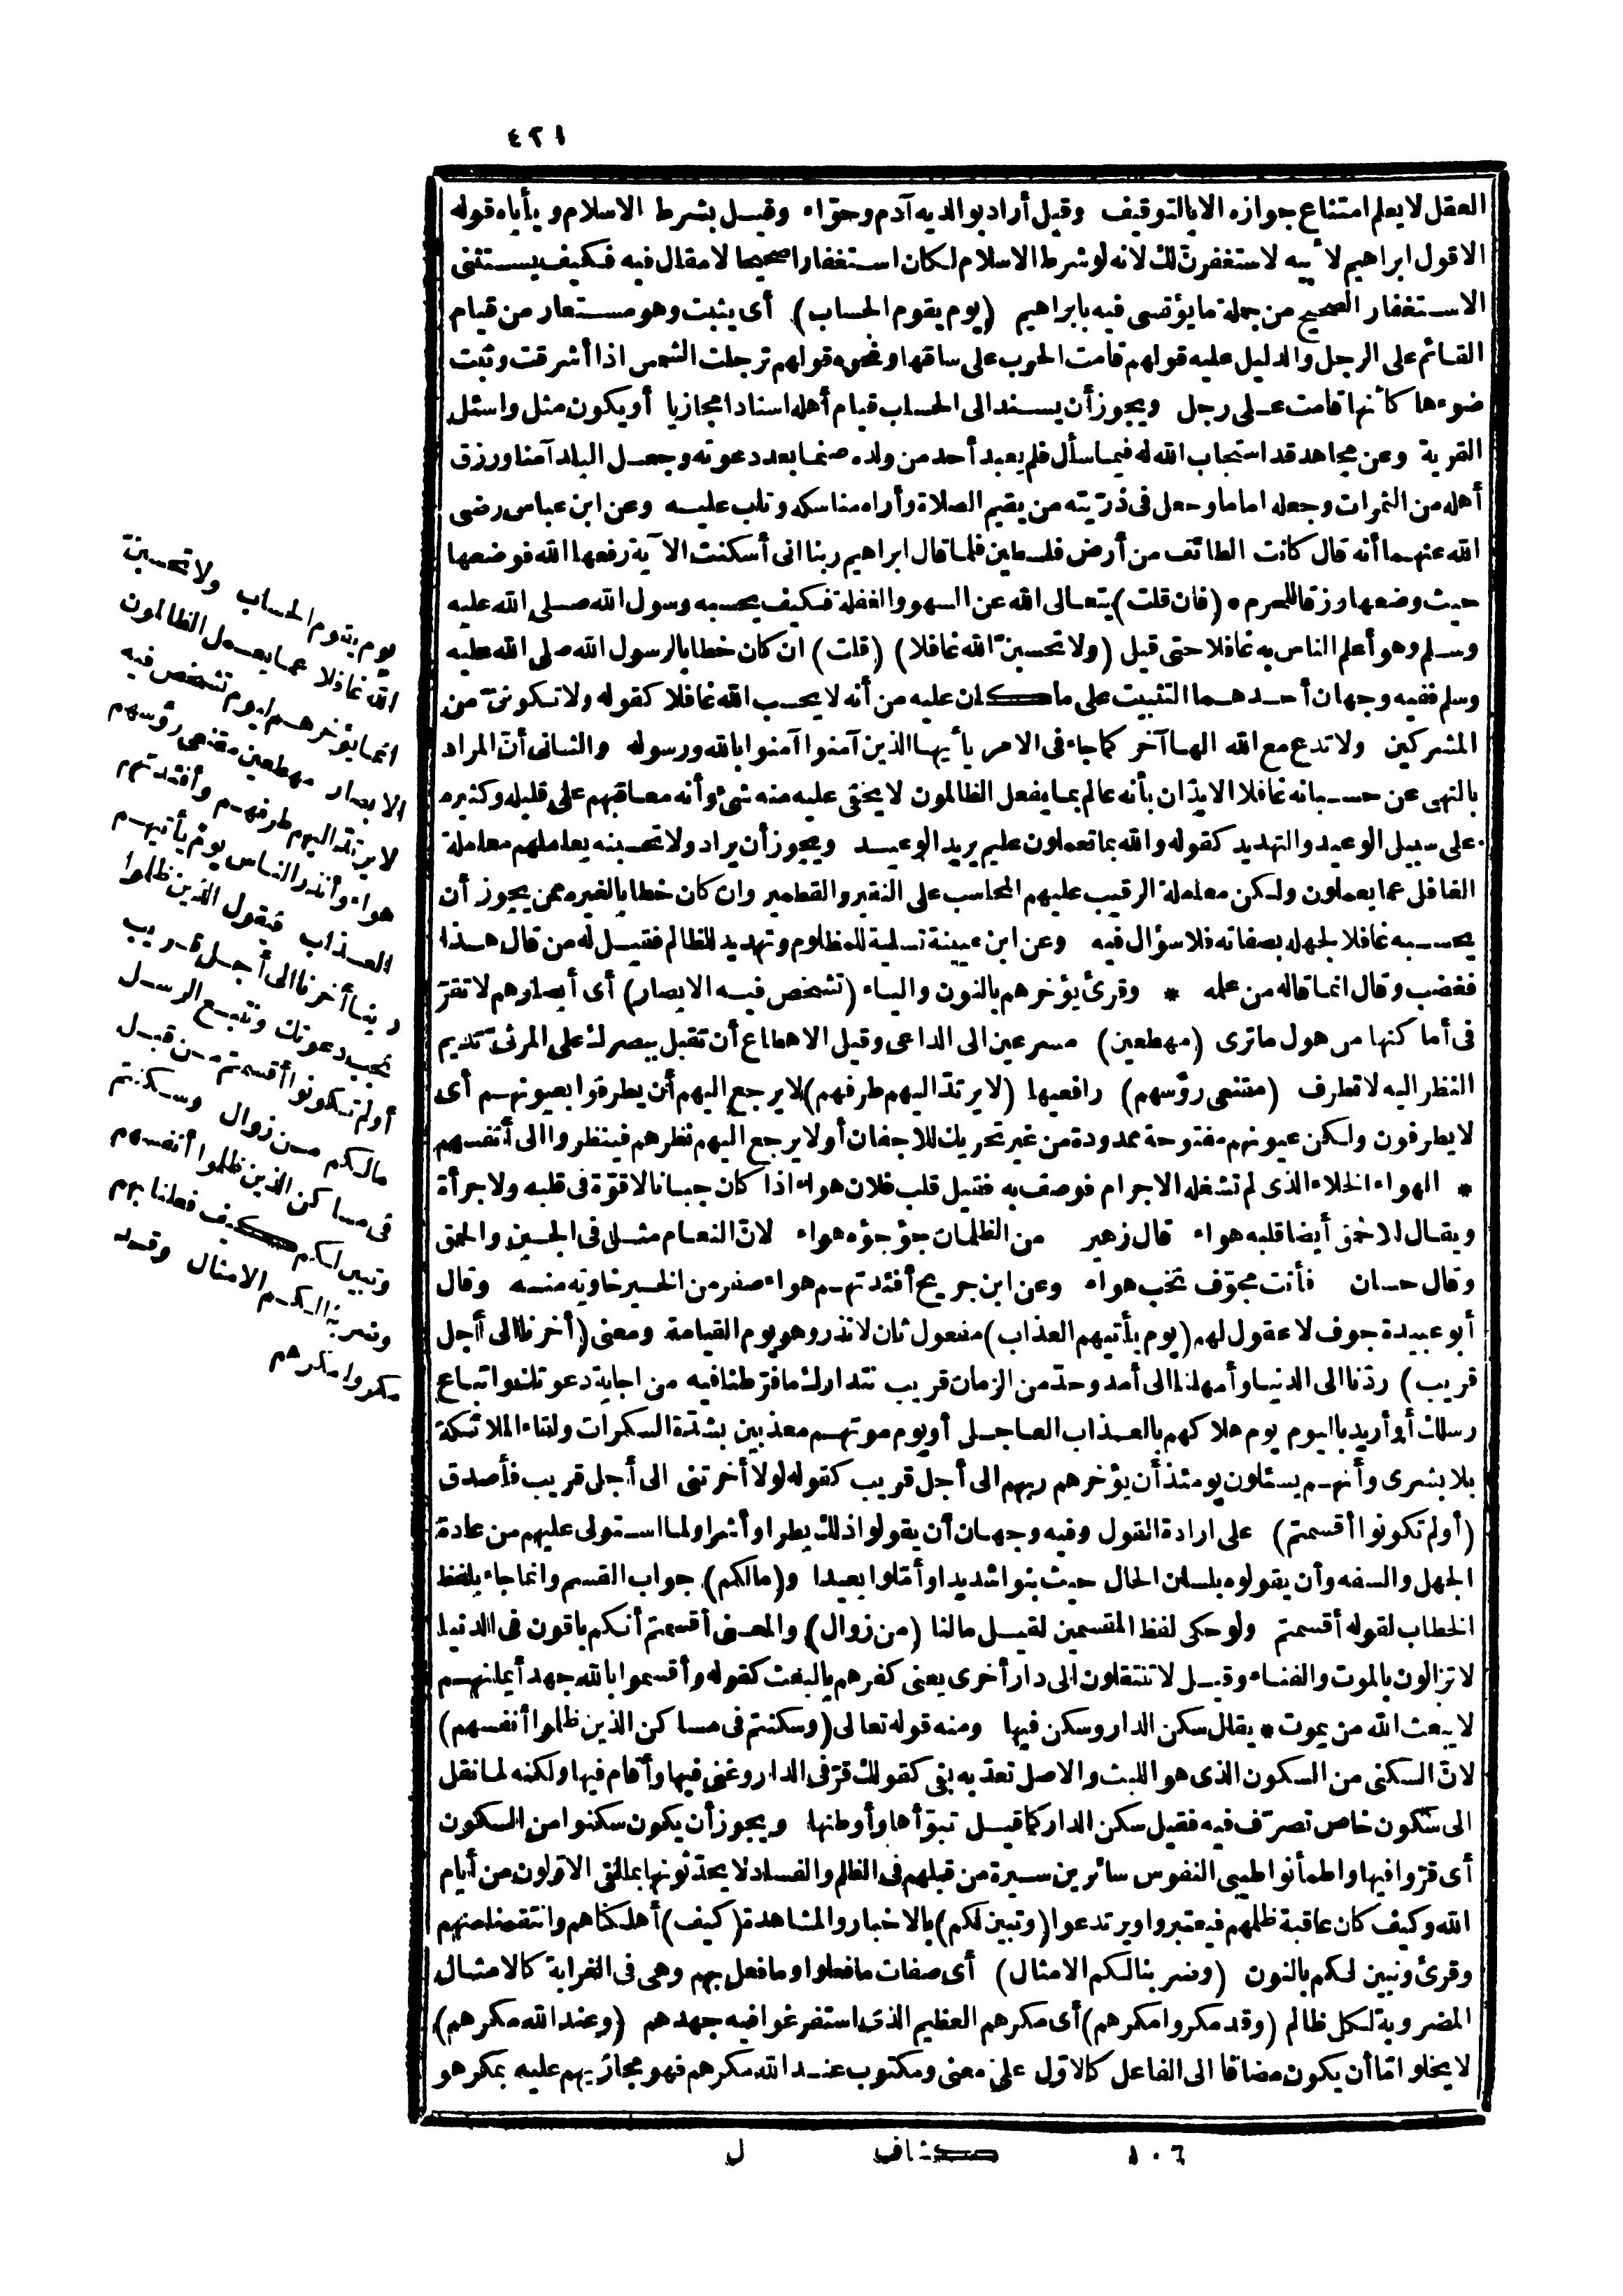 ٤٢١
العقل لا يعلم امتناع جوازه الا بالتوقيف وقيل أراد بوالديه آدم وحوّاء وقيل بشرط الاسلام ويأباه قوله
الا قول ابراهيم لأبيه لاستغفرنّ لك لانه لو شرط الاسلام لكان استغفارا صحيحا لا مقال فيه فكيف يستثنى
الاستغفار الصحيح من جملة ما يؤتسى فيه بابراهيم (يوم يقوم الحساب) أى يثبت وهو مستعار من قيام
القائم على الرجل والدليل عليه قولهم قامت الحرب على ساقها ونحوه قولهم ترجلت الشمس اذا أشرقت وثبت
ضوءها كأنها قامت على رجل ويجوز أن يسند الى الحساب قيام أهله اسنادا مجازيا أو يكون مثل واسئل
القرية وعن مجاهد قد استجاب الله له فيما سأل فلم يعبد أحد من ولده صنما بعد دعوته وجعل البلد آمنا ورزق
أهله من الثمرات وجعله اماما وجعل فى ذرّيته من يقيم الصلاة وأراه مناسكه وتاب عليه وعن ابن عباس رضى
الله عنهما أنه قال كانت الطائف من أرض فلسطين فلما قال ابراهيم ربنا انى أسكنت الآية رفعها الله فوضعها
حيث وضعها رزقا للحرم * (فان قلت) يتعالى الله عن السهو والغفلة فكيف يحسبه رسول الله صلى الله عليه
وسلم وهو أعلم الناس به غافلا حتى قيل (ولا تحسبنّ الله غافلا) (قلت) ان كان خطابا لرسول الله صلى الله عليه
وسلم ففيه وجهان أحدهما التثبيت على ما كان عليه من أنه لا يحسب الله غافلا كقوله ولا تكوننّ من
المشركين ولا تدع مع الله الها آخر كما جاء فى الامر يأيها الذين آمنوا آمنوا بالله ورسوله والثانى أنّ المراد
بالنهى عن حسبانه غافلا الايذان بأنه عالم بما يفعل الظالمون لا يخفى عليه منه شئ وأنه معاقبهم على قليله وكثيره
على سبيل الوعيد والتهديد كقوله والله بما تعملون عليم يريد الوعيد ويجوز أن يراد ولا تحسبنه يعاملهم معاملة
الغافل عما يعملون ولكن معاملة الرقيب عليهم المحاسب على النقير والقطمير وان كان خطابا لغيره ممن يجوز أن
يحسبه غافلا لجهله بصفاته فلا سؤال فيه وعن ابن عيينة تسلية للمظلوم وتهديد للظالم فقيل له من قال هذا
فغضب وقال انما قاله من علمه * وقرئ يؤخرهم بالنون والياء (تشخص فيه الابصار) أى أبصارهم لا تقرّ
فى أماكنها من هول ما ترى (مهطعين) مسرعين الى الداعى وقيل الاهطاع أن تقبل ببصرك على المرئىّ تديم
النظر اليه لا تطرف (مقنعى رؤسهم) رافعيها (لا يرتدّ اليهم طرفهم) لا يرجع اليهم أن يطرفوا بعيونهم أى
لا يطرفون ولكن عيونهم مفتوحة ممدودة من غير تحريك للاجفان أو لا يرجع اليهم نظرهم فينظروا الى أنفسهم
* الهواء الخلاء الذى لم تشغله الاجرام فوصف به فقيل قلب فلان هواء اذا كان جبانا لا قوّة فى قلبه ولا جرأة
ويقال للاحمق أيضا قلبه هواء قال زهير من الظلمان جؤجؤه هواء لانّ النعام مثل فى الجبن والحمق
وقال حسان فأنت مجوّف نخب هواء وعن ابن جريج أفئدتهم هواء صفر من الخير خاوية منه وقال
أبو عبيدة جوف لا عقول لهم (يوم يأتيهم العذاب) مفعول ثان لا نذر وهو يوم القيامة ومعنى (أخرنا الى أجل
قريب) ردّنا الى الدنيا وأمهلنا الى أمد وحدّ من الزمان قريب نتدارك ما فرّطنا فيه من اجابة دعوتك واتباع
رسلك أو أريد باليوم يوم هلاكهم بالعذاب العاجل أو يوم موتهم معذبين بشدّة السكرات ولقاء الملائكة
بلا بشرى وأنهم يسئلون يومئذ أن يؤخرهم ربهم الى أجل قريب كقوله لولا أخرتنى الى أجل قريب فأصدق
(أولم تكونوا أقسمتم) على ارادة القول وفيه وجهان أن يقولوا ذلك بطرا وأشرا ولما استولى عليهم من عادة
الجهل والسفه وأن يقولوه بلسان الحال حيث بنوا شديدا وأمّلوا بعيدا و(مالكم) جواب القسم وانما جاء بلفظ
الخطاب لقوله أقسمتم ولو حكى لفظ المقسمين لقيل مالنا (من زوال) والمعنى أقسمتم أنكم باقون فى الدنيا
لا تزالون بالموت والفناء وقيل لا تنتقلون الى دار أخرى يعنى كفرهم بالبعث كقوله وأقسموا بالله جهد أيمانهم
لا يبعث الله من يموت * يقال سكن الدار وسكن فيها ومنه قوله تعالى (وسكنتم فى مساكن الذين ظلموا أنفسهم)
لانّ السكنى من السكون الذى هو اللبث والاصل تعدّيه بفى كقولك قرّ فى الدار وغنى فيها وأقام فيها ولكنه لما نقل
الى سكون خاص تصرّف فيه فقيل سكن الدار كما قيل تبوّأها وأوطنها ويجوز أن يكون سكنوا من السكون
أى قرّوا فيها واطمأنوا طيبى النفوس سائرين سيرة من قبلهم فى الظلم والفساد لا يحدّثونها بما لقى الاوّلون من أيام
الله وكيف كان عاقبة ظلمهم فيعتبروا ويرتدعوا (وتبين لكم) بالاخبار والمشاهدة (كيف) أهلكناهم وانتقمنا منهم
وقرئ ونبين لكم بالنون (وضربنا لكم الامثال) أى صفات ما فعلوا وما فعل بهم وهى فى الغرابة كالامثال
المضروبة لكل ظالم (وقد مكروا مكرهم) أى مكرهم العظيم الذى استفرغوا فيه جهدهم (وعند الله مكرهم)
لا يخلو امّا أن يكون مضافا الى الفاعل كالاوّل على معنى ومكتوب عند الله مكرهم فهو مجازيهم عليه بمكر هو
يوم يقوم الحساب ولا تحسبنّ
الله غافلا عما يعمل الظالمون
انما يؤخرهم ليوم تشخص فيه
الابصار مهطعين مقنعى رؤسهم
لا يرتدّ اليهم طرفهم وأفئدتهم
هواء وأنذر الناس يوم يأتيهم
العذاب فيقول الذين ظلموا
ربنا أخرنا الى أجل قريب
نجب دعوتك ونتبع الرسل
أولم تكونوا أقسمتم من قبل
مالكم من زوال وسكنتم
فى مساكن الذين ظلموا أنفسهم
وتبين لكم كيف فعلنا بهم
وضربنا لكم الامثال وقد
مكروا مكرهم
١٠٦ كشاف ل